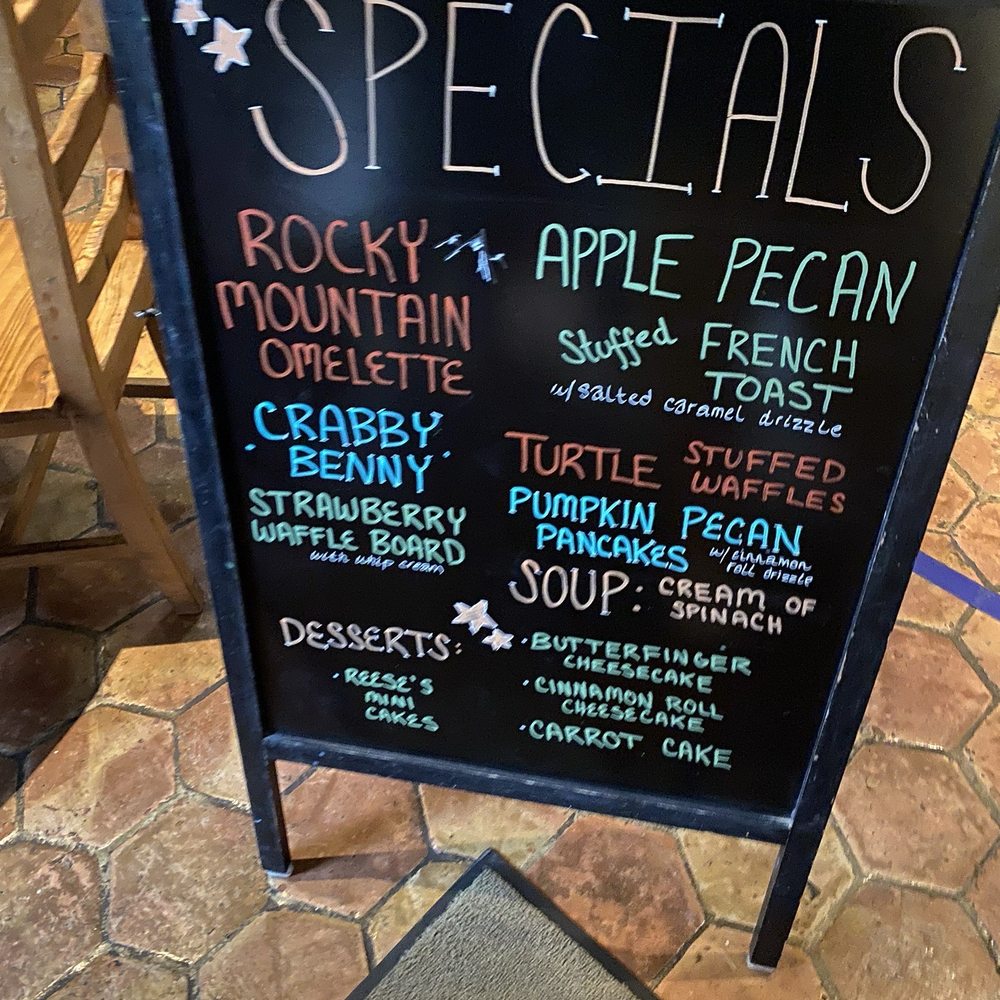 SPECIALS
ROCKY
MOUNTAIN
OMELETTE
CRABBY
BENNY
STRAWBERRY
WAFFLE BOARD
with whip cream
APPLE PECAN
Stuffed FRENCH
TOAST
w/salted caramel drizzle
TURTLE STUFFED
WAFFLES
PUMPKIN PECAN
PANCAKES w/cinnamon
roll drizzle
SOUP: CREAM OF
SPINACH
DESSERTS:
· REESE'S
MINI
CAKES
· BUTTERFINGER
CHEESECAKE
· CINNAMON ROLL
CHEESECAKE
· CARROT CAKE